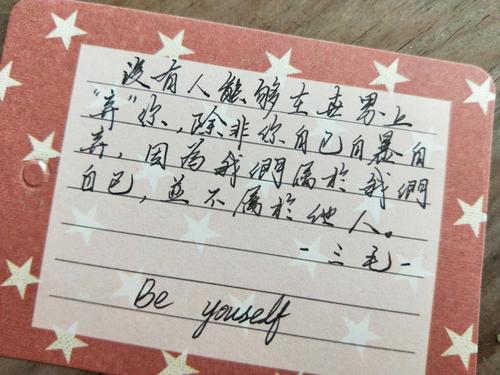 没有人能够在世界上
“弃”你，除非你自己自暴自
弃，因為我們属於我們
自己，並不属於他人。
-三毛-
Be youself